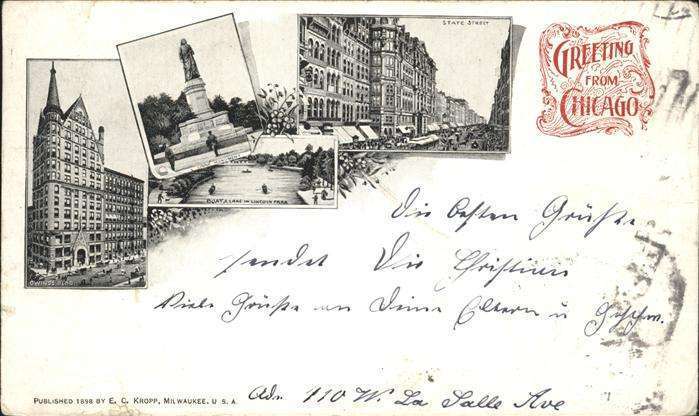 STATE STREET
GREETING
FROM
CHICAGO
BOAT & LAKE IN LINCOLN PARK
OWINGS BLDG.
Die besten Grüße
sendet Dir Christian
Viele Grüße an Deine Eltern u Geschw.
PUBLISHED 1898 BY E. C. KROPP, MILWAUKEE, U. S. A.
Adr. 110 W. La Salle Ave